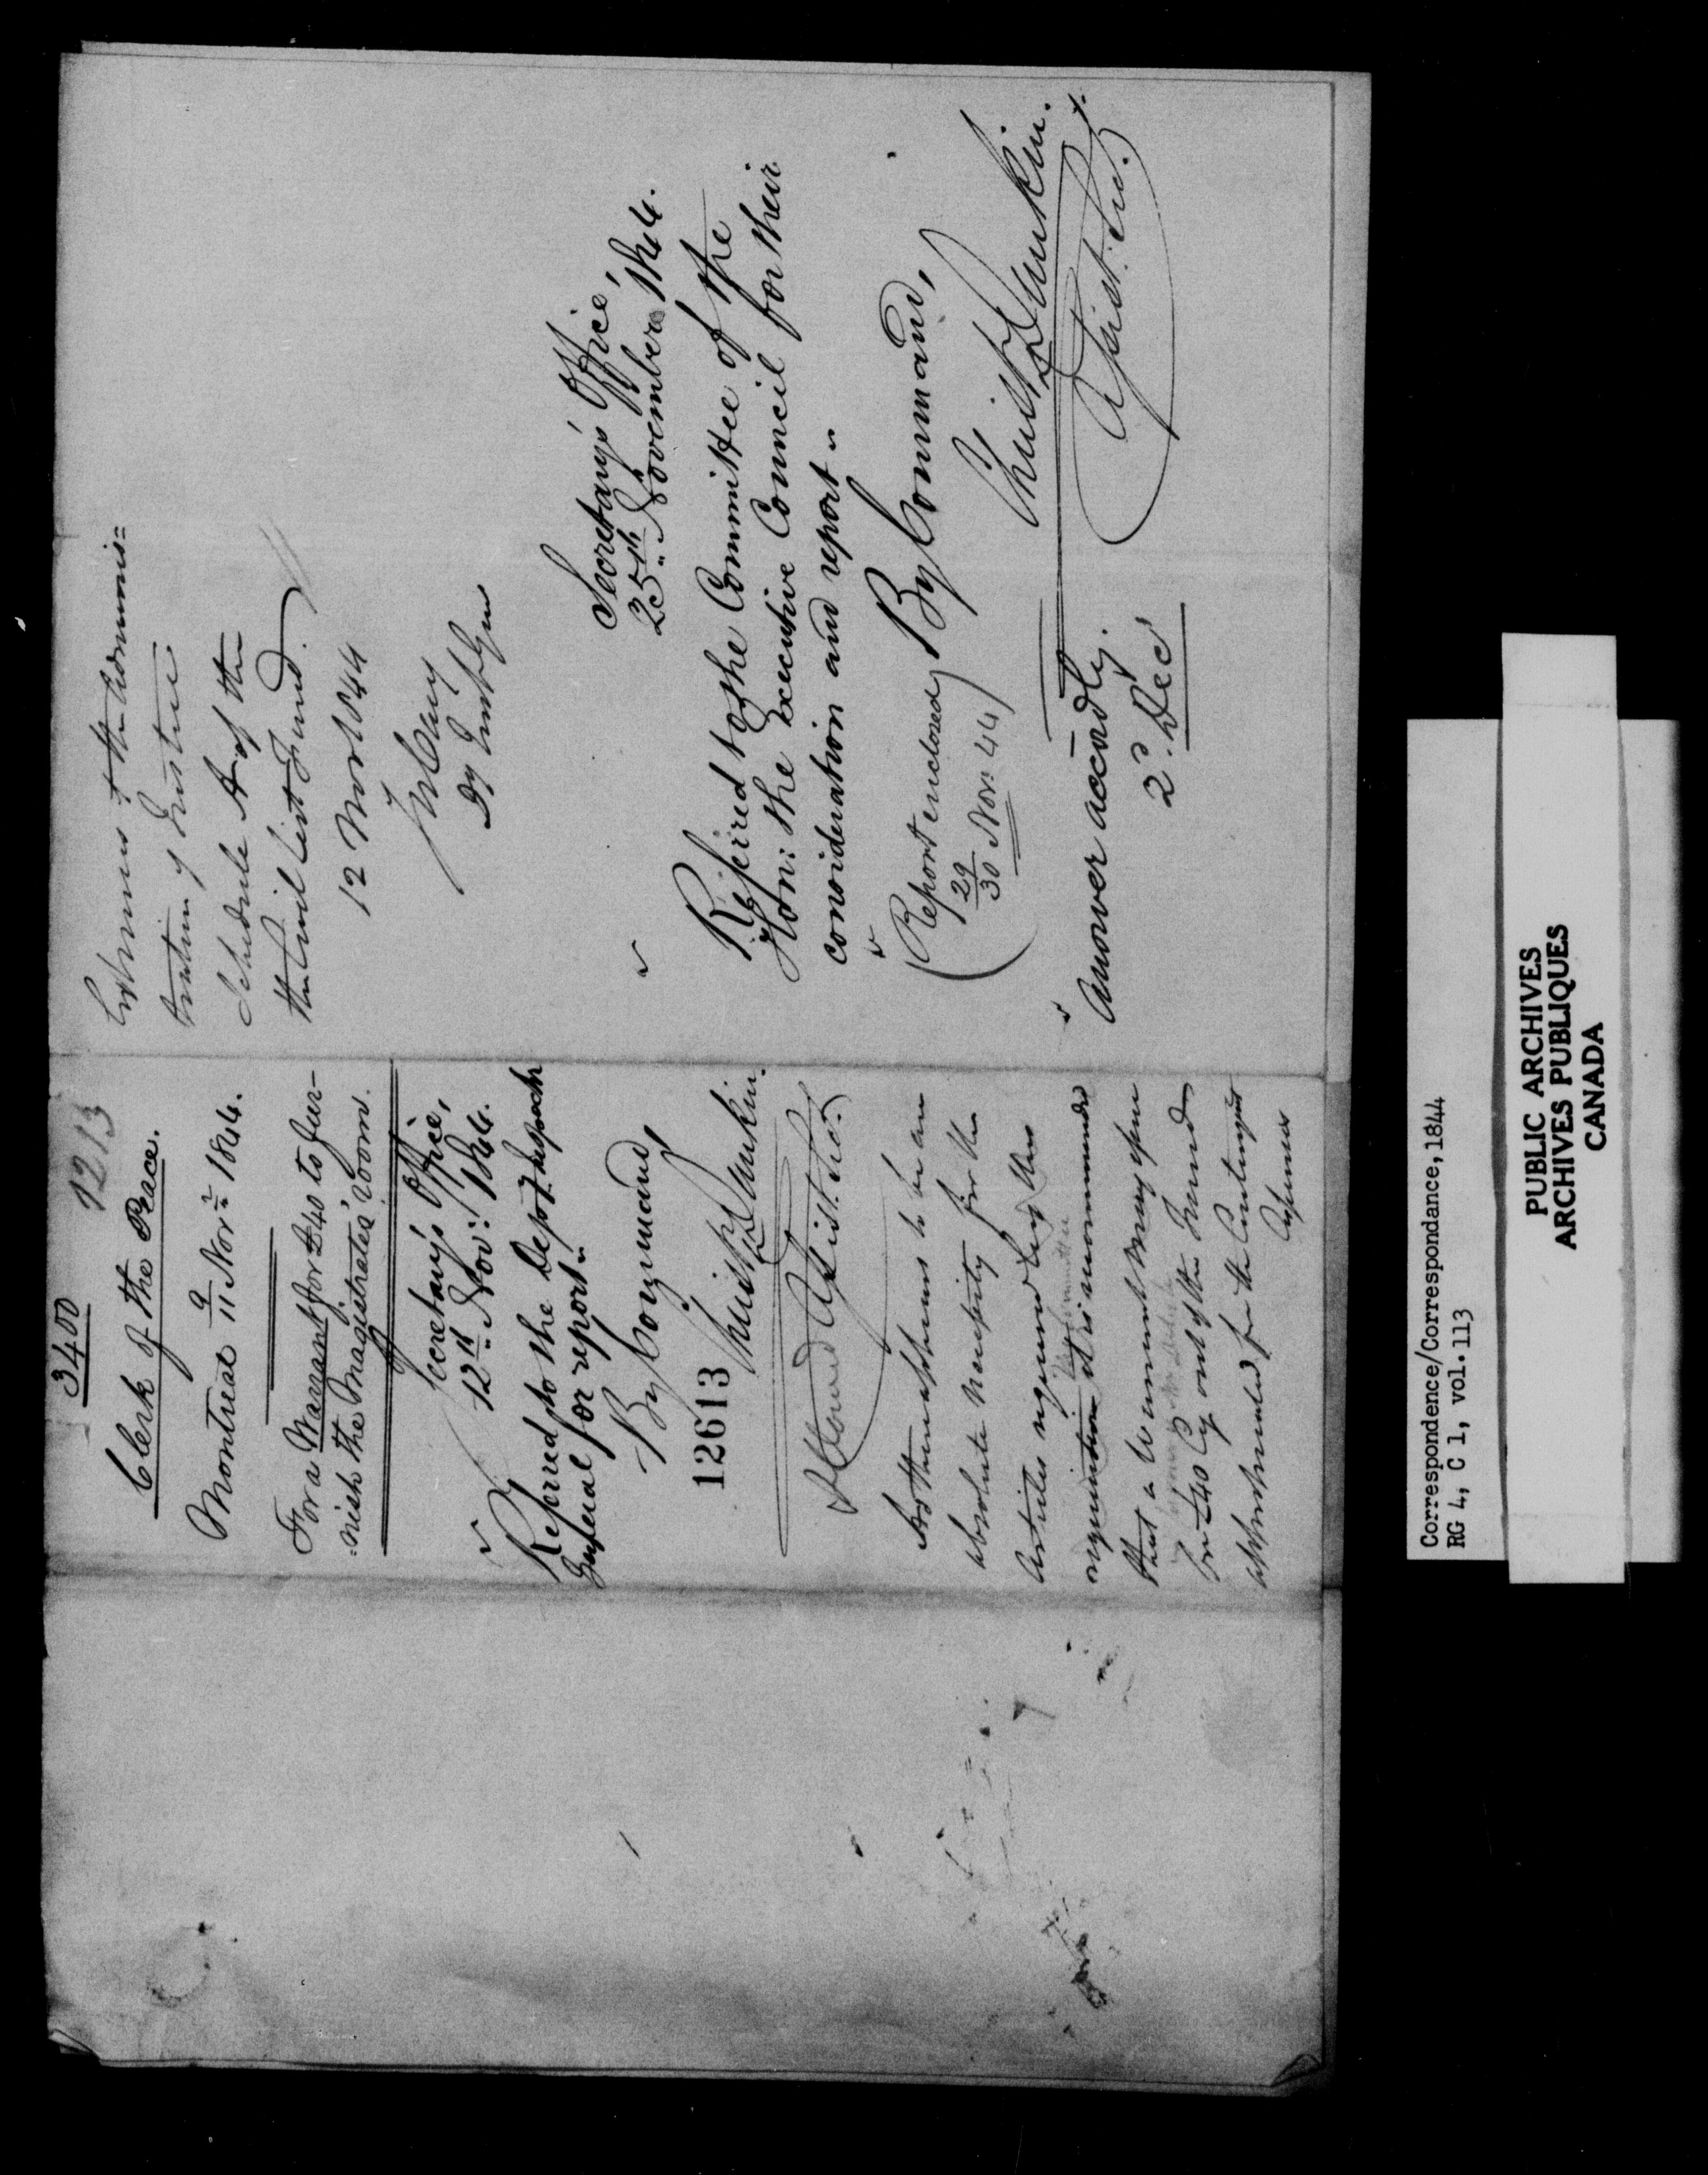 3400
1213
Clerk of the Peace.
Montreal 9/11 Novr. 1844.
For a Warrant for £40 to fur-
nish the Magistrates' room.
Secretary's Office,
12th Nov: 1844.
Referred to the Depy. Inspector
General for report.
By Command,
Christr. Dunkin.
Assist. Sec.
12613
As there appears to be an
absolute necessity for the
articles required by this
requisition it is recommended
that a Warrant may issue
for £40 Cy out of the Funds
appropriated for the Contingent
Expenses of the Adminis=
tration of Justice
Schedule A of the
the Civil List Fund.
12 Nov 1844
Jos Cary
Dy Inspr Gen
Secretary's Office,
25th November 1844.
Referred to the Committee of the
Hon: the Executive Council for their
consideration and report.
By Command,
Christr. Dunkin.
Assist. Sec.
(Report enclosed
29/30 Nov: 44)
Answer accordly.
2d. Dec
Correspondence/Correspondance, 1844
RG 4, C 1, vol. 113
PUBLIC ARCHIVES
ARCHIVES PUBLIQUES
CANADA